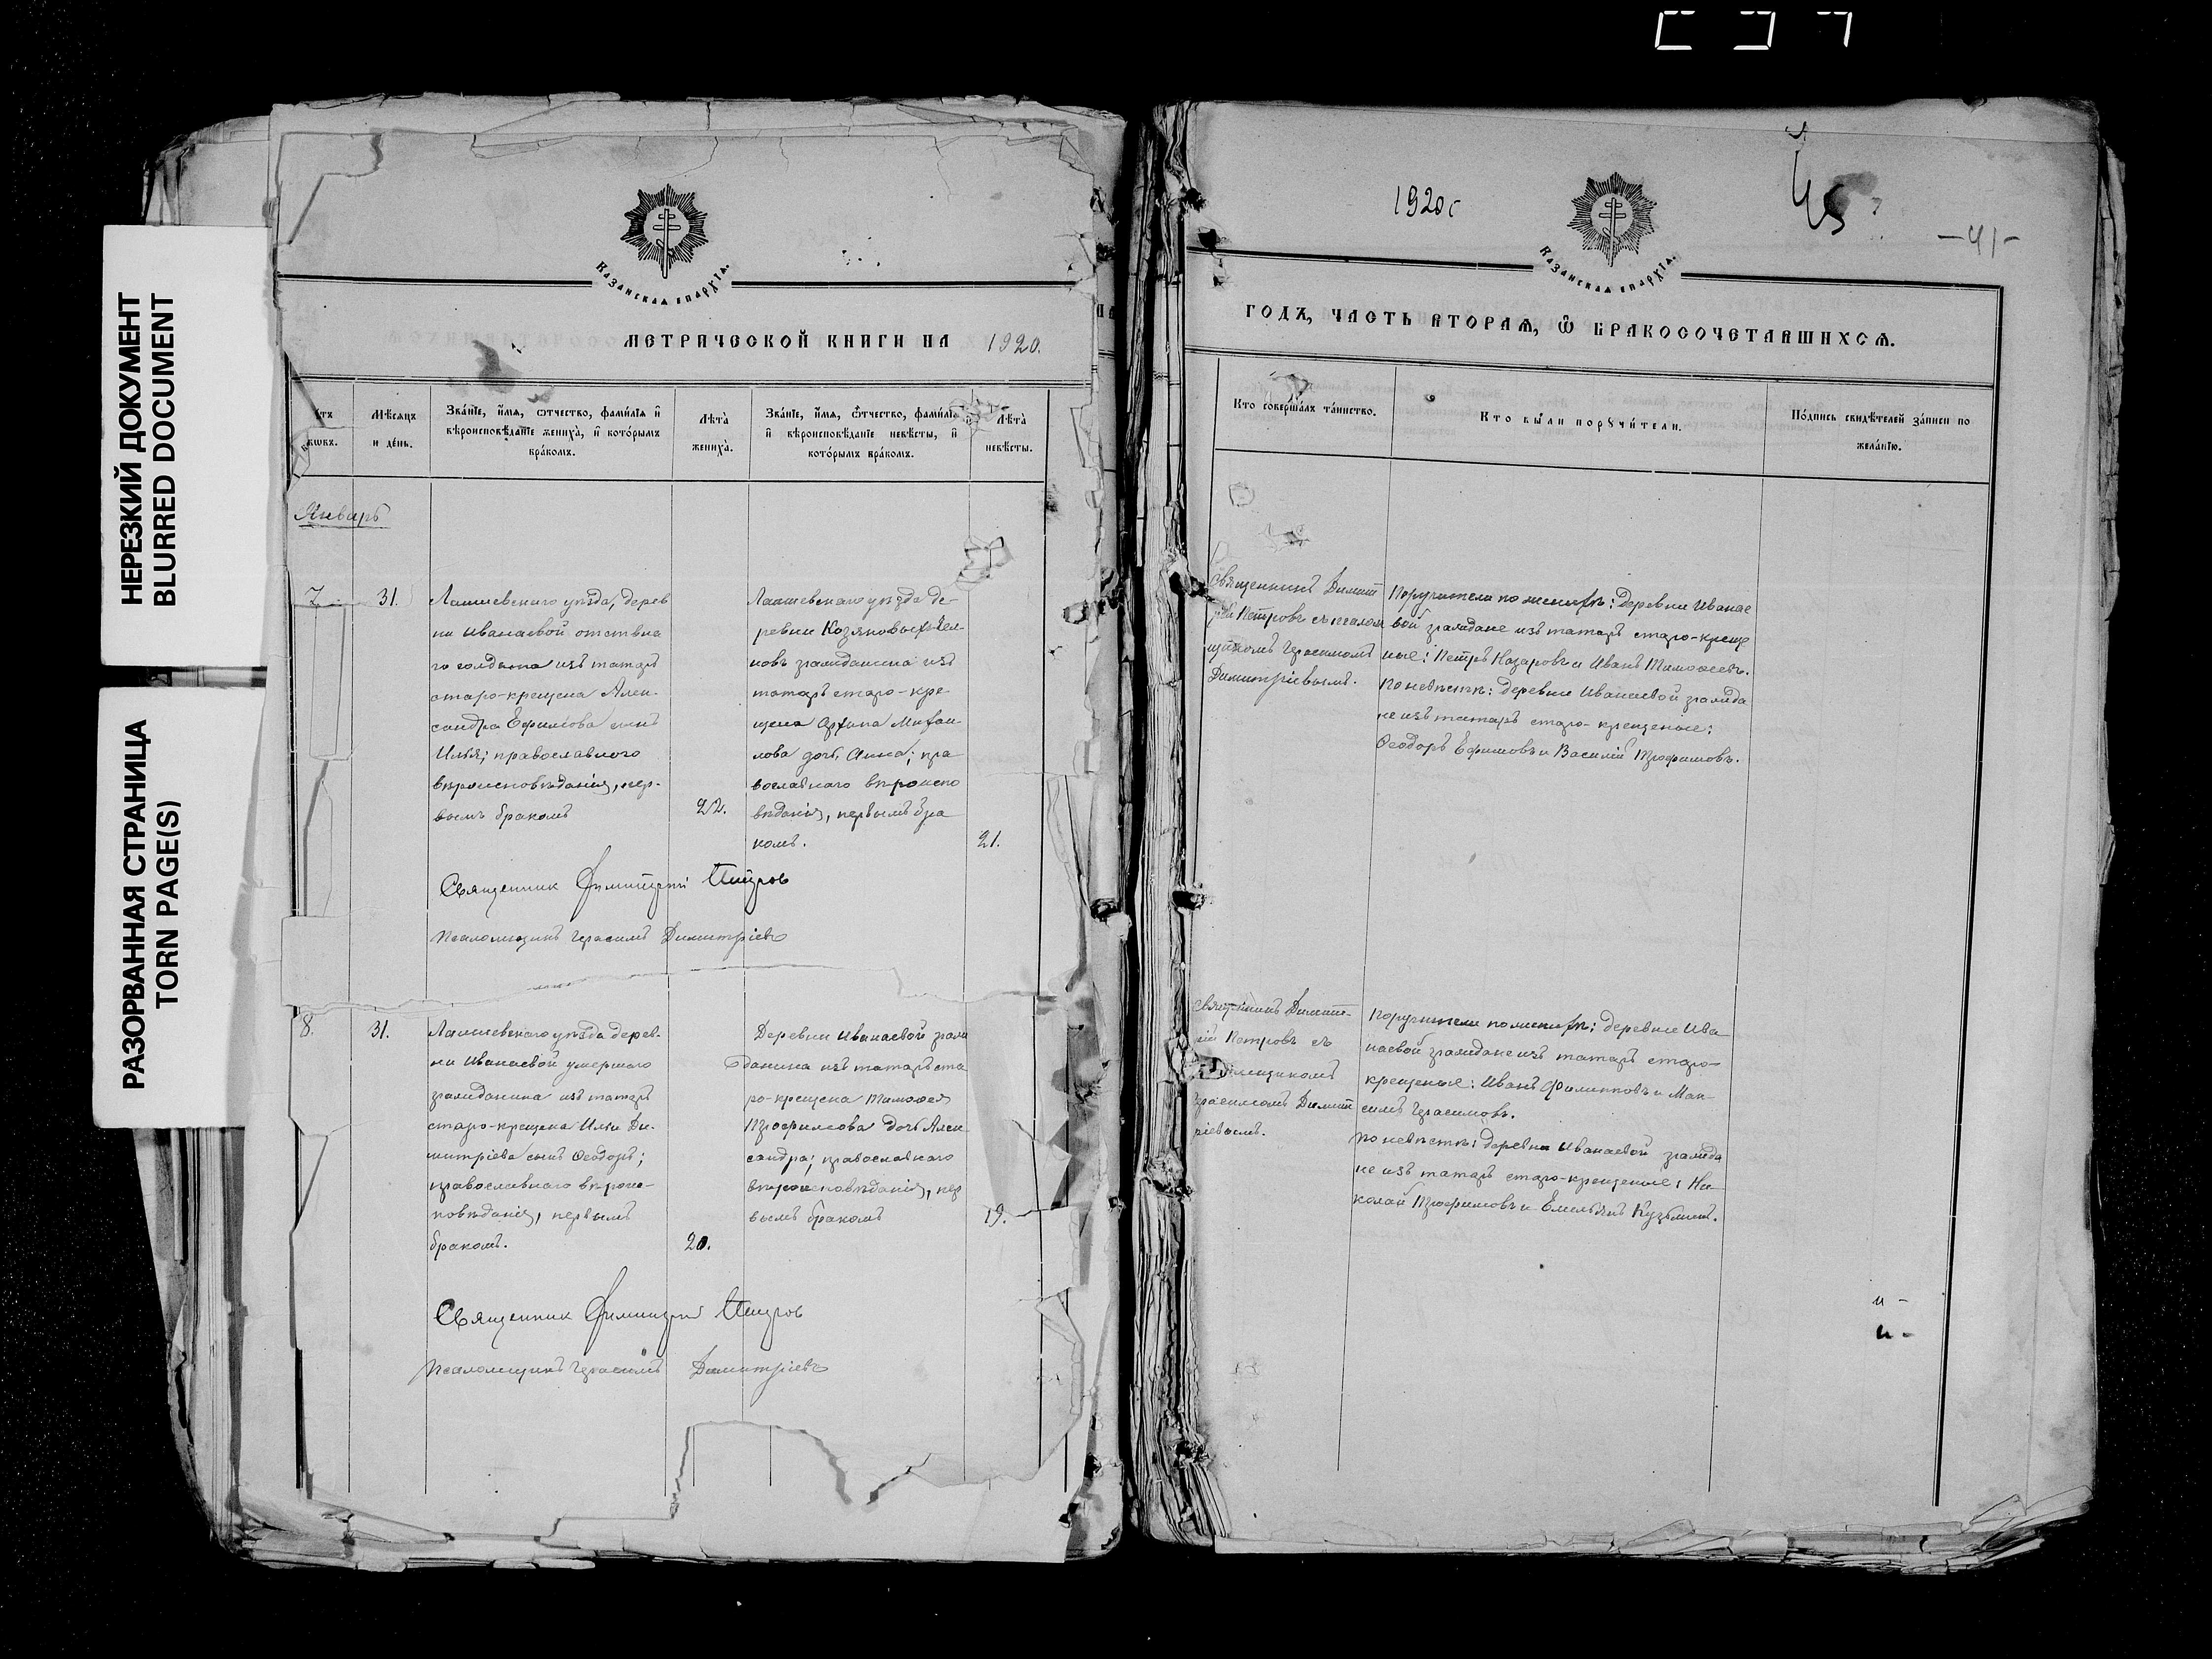 НЕРЕЗКИЙ ДОКУМЕНТ
BLURRED DOCUMENT
РАЗОРВАННАЯ СТРАНИЦА
TORN PAGE(S)
Казанская епархїа.
МЕТРИЧЕСКОЙ КНИГИ НА 1920.
Мѣсяцъ и де́нь.
Зва́нїе, и́мя, ѻ҆́тчество, фами́лїя и҆
вѣроисповѣ́данїе жениха̀, и҆ кото́рымъ
бра́комъ.
Лѣта̀
жениха̀.
Зва́нїе, и́мя, ѻ҆́тчество, фами́лїя
и҆ вѣроисповѣ́данїе невѣ́сты, и҆
кото́рымъ бра́комъ.
Лѣта̀
невѣ́сты.
Январь
7
31.
Лаишевскаго уѣзда, дерев
ни Иванаевой отставна
го солдата изъ татаръ
старо-крещена Алек-
сандра Ефимова сынъ
Илья; православнаго
вѣроисповѣданія, пер-
вымъ бракомъ
22.
Лаишевскаго уѣзда де-
ревни Козяковыхъ Чел-
новъ гражданина изъ
татаръ старо-кре-
щена Архипа Михаи-
лова дочь Анна; пра
вославнаго вѣроиспо
вѣданія, первымъ бра
комъ.
21.
Священник Димитрий Петров
Псаломщикъ Герасимъ Димитріевъ
8.
31.
Лаишевскаго уѣзда дерев-
ни Иванаевой умершаго
гражданина изъ татаръ
старо-крещена Ильи Ди-
митріева сынъ Ѳеодоръ;
православнаго вѣроис-
повѣданія, первымъ
бракомъ.
20.
Деревни Иванаевой граж
данина изъ татаръ ста
ро-крещена Тимоѳея
Трофимова дочь Алек
сандра; православнаго
вѣроисповѣданія, пер
вымъ бракомъ
19.
Священник Димитрий Петров
Псаломщикъ Герасимъ Димитріевъ
1920 г
45
-41-
Казанская епархїа.
ГОДЪ, ЧАСТЬ ВТОРАѦ, Ѡ҆ БРАКОСОЧЕТАВШИХСѦ.
Кто соверша́лъ та́инство.
Кто бы́ли порꙋчи́тели.
По́дпись свидѣ́телей за́писи по
жела́нїю.
Священникъ Димит
рій Петровъ съ псалом
щикомъ Герасимомъ
Димитріевымъ.
Поручители по женихѣ: Деревни Иванае
вой граждане изъ татаръ старо-креще
ные: Петръ Назаровъ и Иванъ Тимоѳеевъ.
По невѣстѣ: деревни Иванаевой гражда
не изъ татаръ старо-крещеные:
Ѳеодоръ Ефимовъ и Василій Трофимовъ.
Священникъ Димит-
рій Петровъ съ
псаломщикомъ
Герасимомъ Димит
ріевымъ.
Поручители по женихѣ: деревни Ива
наевой граждане изъ татаръ старо-
крещеные: Иванъ Филипповъ и Мак-
симъ Герасимовъ.
По невѣстѣ: деревни Иванаевой гражда
не изъ татаръ старо-крещеные: Ни-
колай Трофимовъ и Емельянъ Кузьминъ.